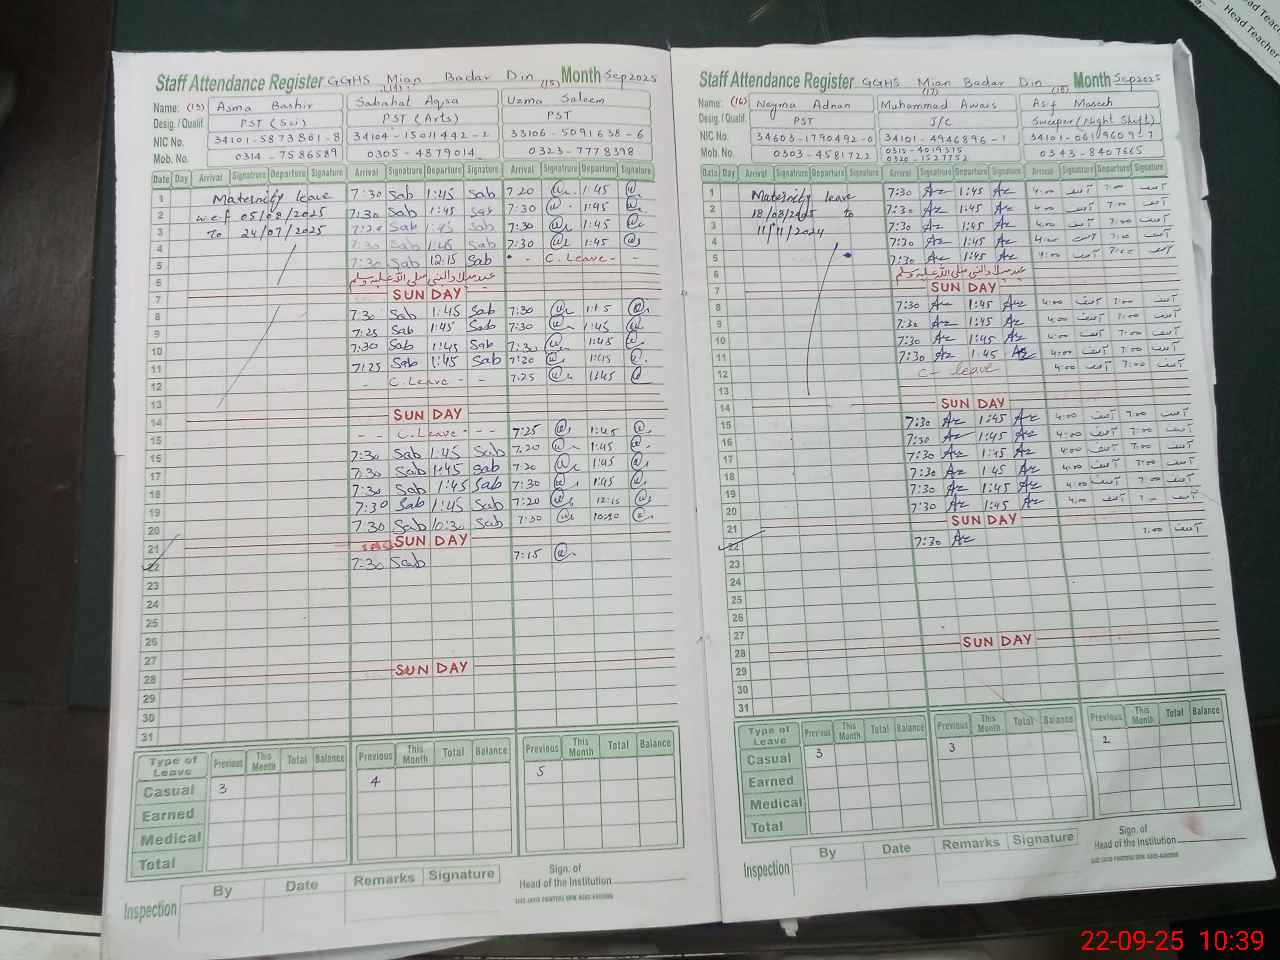 Head Teacher
Head Teacher
Staff Attendance Register GGHS Mian Badar Din Month Sep 2025
Name: (13) Asma Bashir (14) Sabahat Aqsa (15) Uzma Saleem
Desig. / Qualif. PST (Sci) PST (Arts) PST
NIC No. 34101-5873861-8 34104-15011442-2 33106-5091638-6
Mob. No. 0314-7586589 0305-4879014 0323-7778398
Date Day Arrival Signature Departure Signature Arrival Signature Departure Signature Arrival Signature Departure Signature
1 Maternity leave 7:30 Sab 1:45 Sab 7:20 1:45
2 w.e.f 05/08/2025 7:30 Sab 1:45 Sab 7:30 1:45
3 To 24/07/2025 7:30 Sab 1:45 Sab 7:30 1:45
4 7:30 Sab 1:45 Sab 7:30 1:45
5 7:30 Sab 12:15 Sab - C.Leave - -
6 عید میلاد النبی صلی اللہ علیہ وسلم
7 SUNDAY
8 7:30 Sab 1:45 Sab 7:30 1:15
9 7:25 Sab 1:45 Sab 7:30 1:45
10 7:30 Sab 1:45 Sab 7:30 1:45
11 7:25 Sab 1:45 Sab 7:20 1:15
12 - - C.Leave - - 7:25 1:45
13
14 SUNDAY
15 - - C.Leave - - 7:25 1:45
16 7:30 Sab 1:45 Sab 7:20 1:45
17 7:30 Sab 1:45 Sab 7:20 1:45
18 7:30 Sab 1:45 Sab 7:30 1:45
19 7:30 Sab 1:45 Sab 7:20 12:15
20 7:30 Sab 10:30 Sab 7:30 10:30
21 SUNDAY
22 7:30 Sab 7:15
23
24
25
26
27
28 SUNDAY
29
30
31
Type of Leave Previous This Month Total Balance Previous This Month Total Balance Previous This Month Total Balance
Casual 3 4 5
Earned
Medical
Total
Inspection By Date Remarks Signature
Sign. of
Head of the Institution
Staff Attendance Register GGHS Mian Badar Din Month Sep 2025
Name: (16) Neyma Adnan (17) Muhammad Awais (18) Asif Maseeh
Desig. / Qualif. PST J/C Sweeper (Night Shift)
NIC No. 34603-1790492-0 34101-4946896-1 34101-0619609-7
Mob. No. 0303-4581722 0315-4019375 0343-8407665
0320-1527752
Date Day Arrival Signature Departure Signature Arrival Signature Departure Signature Arrival Signature Departure Signature
1 Maternity leave 7:30 Az 1:45 Az 4:00 آصف 7:00 آصف
2 18/08/2025 to 7:30 Az 1:45 Az 4:00 آصف 7:00 آصف
3 11/11/2024 7:30 Az 1:45 Az 4:00 آصف 7:00 آصف
4 7:30 Az 1:45 Az 4:00 آصف 7:00 آصف
5 7:30 Az 1:45 Az 4:00 آصف 7:00 آصف
6 عید میلاد النبی صلی اللہ علیہ وسلم
7 SUNDAY
8 7:30 Az 1:45 Az 4:00 آصف 7:00 آصف
9 7:30 Az 1:45 Az 4:00 آصف 7:00 آصف
10 7:30 Az 1:45 Az 4:00 آصف 7:00 آصف
11 7:30 Az 1:45 Az 4:00 آصف 7:00 آصف
12 C- leave 4:00 آصف 7:00 آصف
13
14 SUNDAY
15 7:30 Az 1:45 Az 4:00 آصف 7:00 آصف
16 7:30 Az 1:45 Az 4:00 آصف 7:00 آصف
17 7:30 Az 1:45 Az 4:00 آصف 7:00 آصف
18 7:30 Az 1:45 Az 4:00 آصف 7:00 آصف
19 7:30 Az 1:45 Az 4:00 آصف 7:00 آصف
20 7:30 Az 1:45 Az 4:00 آصف 7:00 آصف
21 SUNDAY
22 7:30 Az 7:00 آصف
23
24
25
26
27
28 SUNDAY
29
30
31
Type of Leave Previous This Month Total Balance Previous This Month Total Balance Previous This Month Total Balance
Casual 3 3 2
Earned
Medical
Total
Inspection By Date Remarks Signature
Sign. of
Head of the Institution
22-09-25 10:39